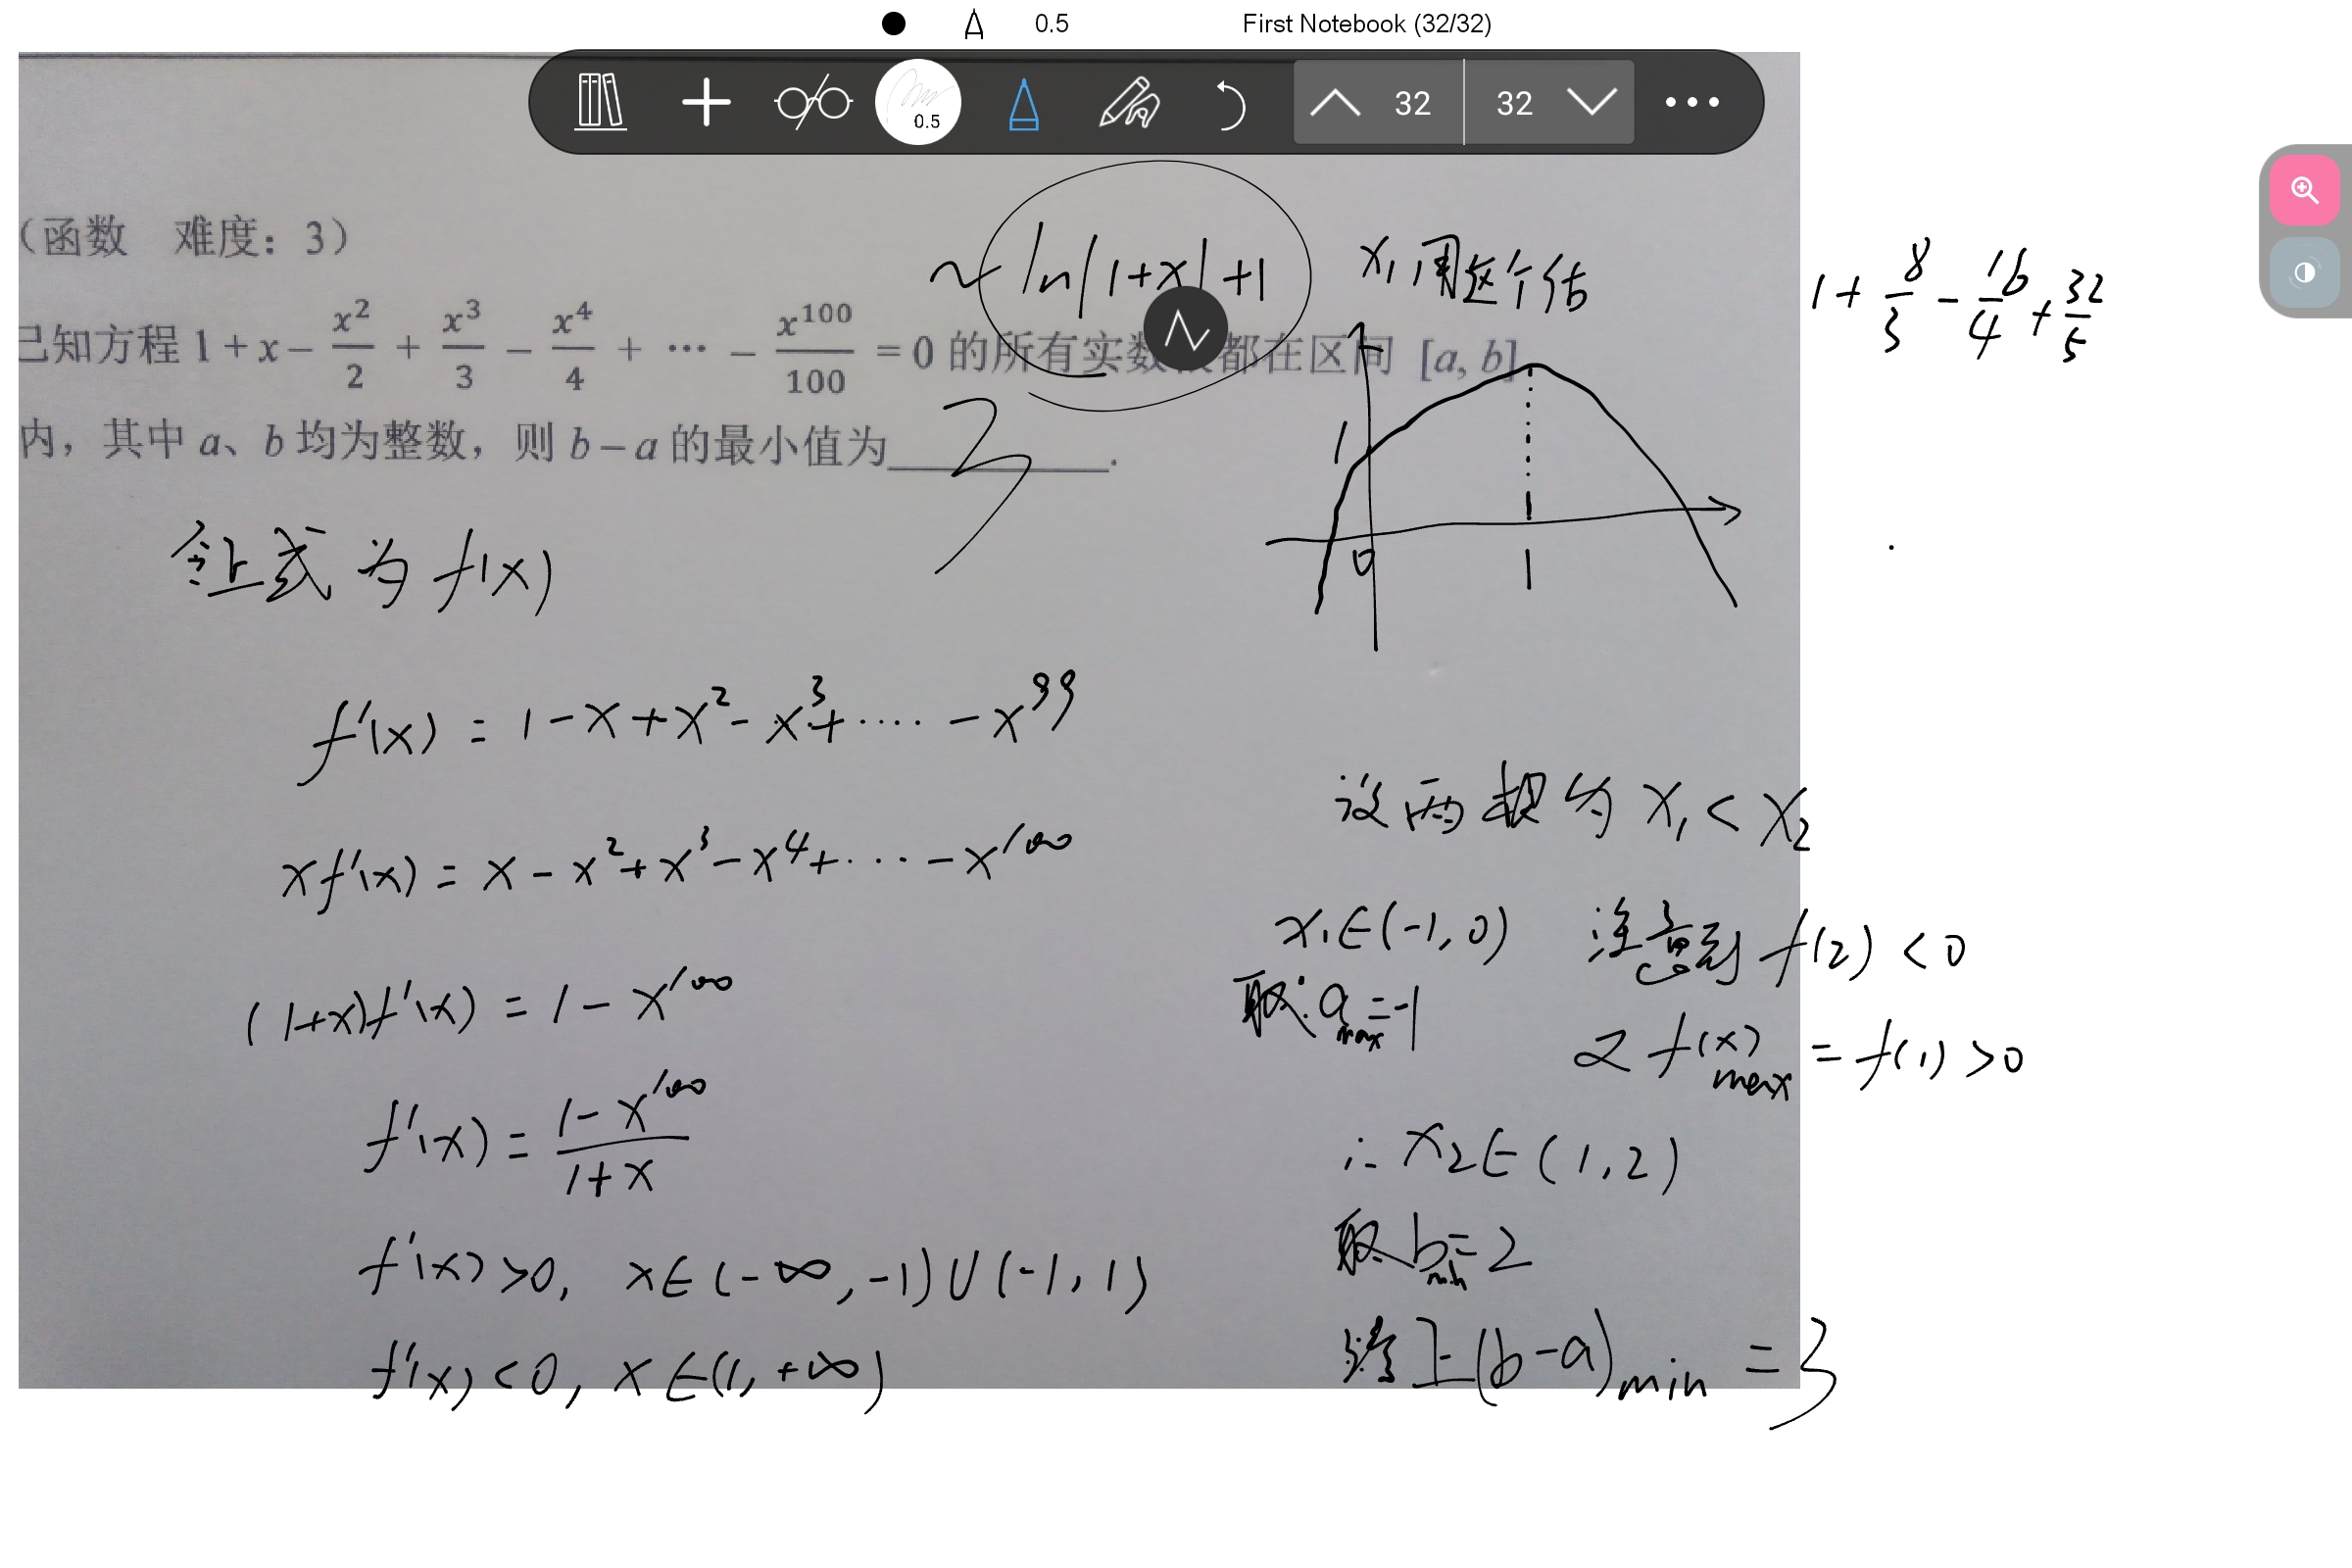 0.5 First Notebook (32/32)
0.5 32 32
(函数 难度：3)
~ ln|1+x|+1 x₁用这个估
1 + 8/3 - 16/4 + 32/5
已知方程 1 + x − x²/2 + x³/3 − x⁴/4 + ⋯ − x¹⁰⁰/100 = 0 的所有实数 都在区间 [a, b]
内，其中 a、b 均为整数，则 b − a 的最小值为________.
3
1
0 1
令上式为 f(x)
f'(x) = 1 - x + x² - x³ + ···· - x⁹⁹
xf'(x) = x - x² + x³ - x⁴ + ···· - x¹⁰⁰
(1+x)f'(x) = 1 - x¹⁰⁰
f'(x) = (1 - x¹⁰⁰)/(1+x)
f'(x) >0, x∈(-∞, -1)∪(-1, 1)
f'(x) <0, x∈(1, +∞)
设两根为 x₁ < x₂
x₁∈(-1, 0) 注意到 f(2) < 0
取 a max = -1
又 f(x) max = f(1) >0
∴ x₂∈(1, 2)
取 b min = 2
综上 (b-a)min = 3